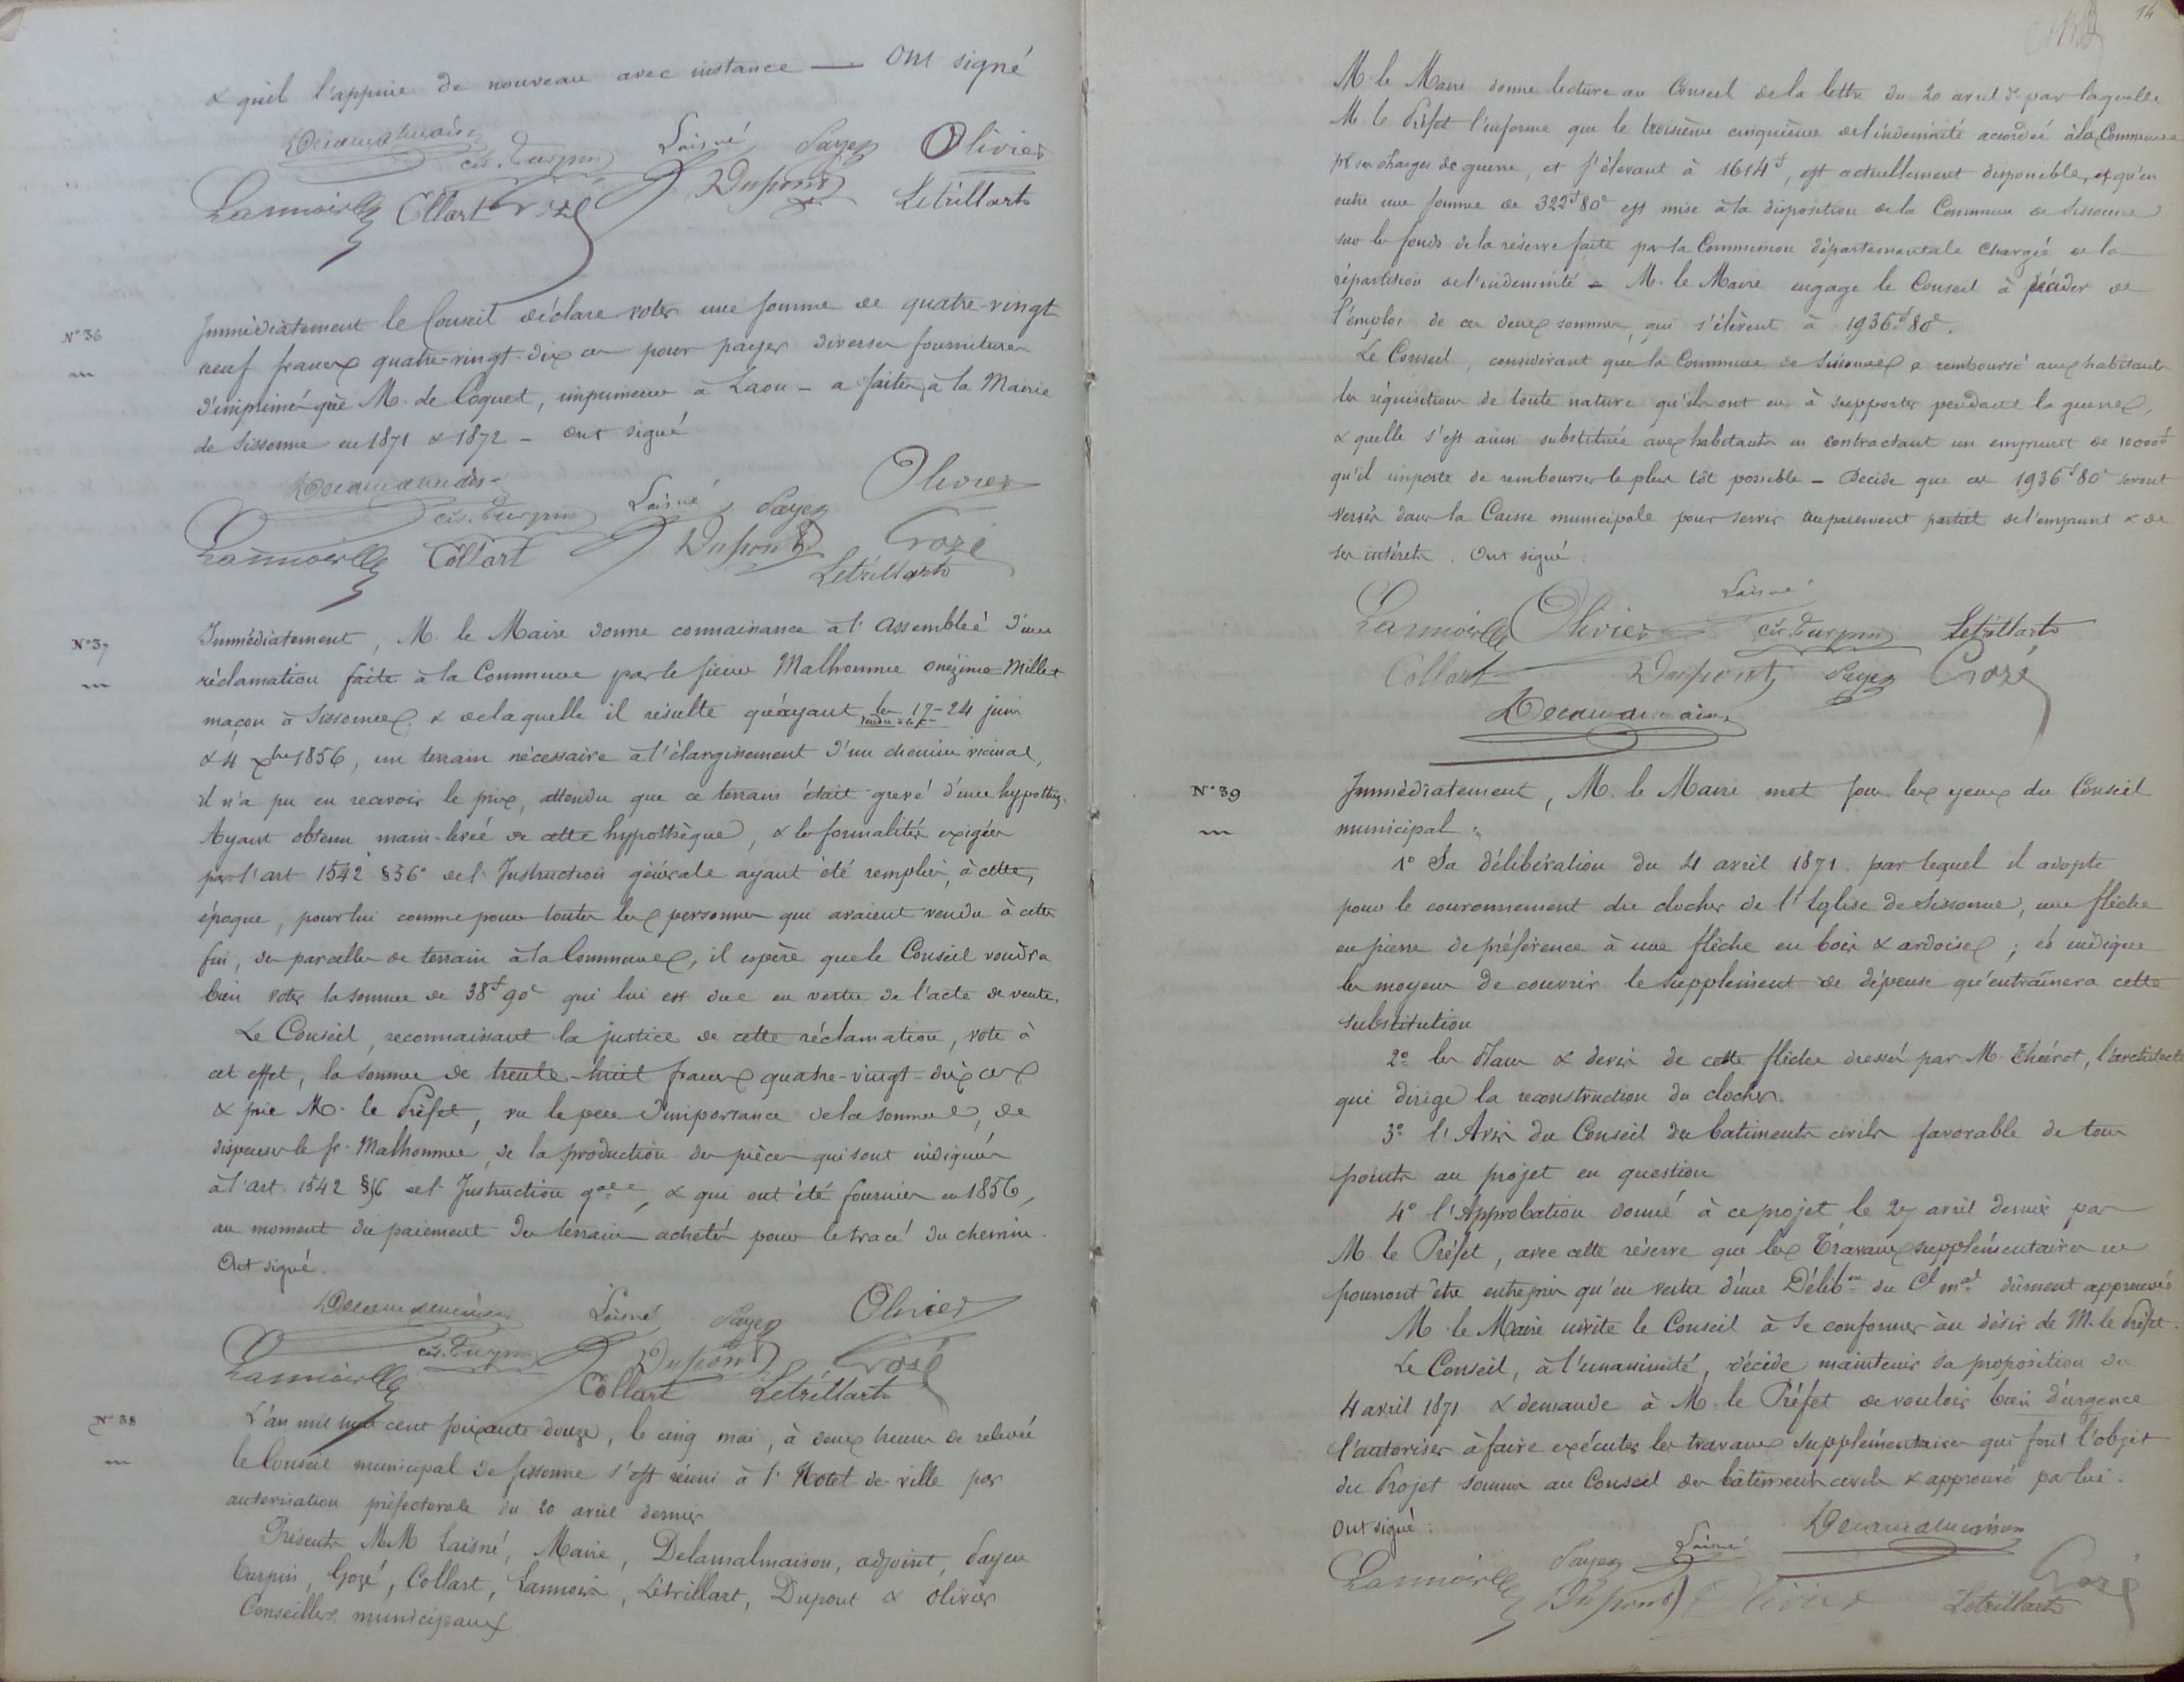 & qu'il l'appuie de nouveau avec instance — Ont signé
Delamalmaison Laisné Payen Olivier
cés. Turpin
Lannoir Collart Gozé Dupont Létrillart
N° 36
Immédiatement le Conseil déclare voter une somme de quatre-vingt
neuf francs quatre-vingt-dix ces pour payer diverses fournitures
d'imprimés que M. de Coquet, imprimeur à Laon — a faites à la Mairie
de Sissonne en 1871 & 1872 — Ont signé
Delamalmaison Laisné Payen Olivier
cés. Turpin
Lannoir Collart Dupont Gozé
Létrillart
N° 37
Immédiatement, M. le Maire donne connaissance à l'assemblée d'une
réclamation faite à la Commune par le sieur Malhomme onézime Millet
maçon à Sissonne, & de laquelle il résulte qu'ayant les 17-24 juin
vendu à la
& 4 xbre 1856, un terrain nécessaire à l'élargissement d'un chemin vicinal,
il n'a pu en recevoir le prix, attendu que ce terrain était grevé d'une hypothèq.
Ayant obtenu main-levée de cette hypothèque, & les formalités exigées
par l'art 1542 § 56° de l'Instruction générale ayant été remplies, à cette,
époque, pour lui comme pour toutes les personnes qui avaient vendu à cette
fin, des parcelles de terrain à la Commune, il espère que le Conseil voudra
bien voter la somme de 38f 90c qui lui est due en vertu de l'acte de vente.
Le Conseil, reconnaissant la justice de cette réclamation, vote à
cet effet, la somme de trente-huit francs quatre-vingt-dix ces
& prie M. le Préfet, vu le peu d'importance de la somme, de
dispenser le sr. Malhomme, de la production des pièces qui sont indiquées
à l'art. 1542 §56 de l'Instruction gale, & qui ont été fournies en 1856,
au moment du paiement des terrains achetés pour le tracé du chemin.
Ont signé.
Delamalmaison Laisné Payen Olivier
cés. Turpin Dupont Gozé
Lannoir Collart Létrillart
N° 38
L'an mil huit cent soixante douze, le cinq mai, à deux heures de relevée
le Conseil municipal de Sissonne s'est réuni à l'Hotel de ville par
autorisation préfectorale du 20 avril dernier
Présents MM Laisné, Maire, Delamalmaison, adjoint, Payen
Turpin, Gozé, Collart, Lannoir, Létrillart, Dupont & Olivier
Conseillers municipaux
14
M. le Maire donne lecture au Conseil de la lettre du 20 avril dr par laquelle
M. le Préfet l'informe que le troisième cinquième de l'indemnité accordée à la Commune
pr ses charges de guerre, et s'élevant à 1614f, est actuellement disponible, et qu'en
outre une somme de 322f 80c est mise à la disposition de la Commune de Sissonne
sur les fonds de la réserve faite par la Commission départementale chargée de la
répartition de l'indemnité — M. le Maire engage le Conseil à décider de
l'emploi de ces deux sommes, qui s'élèvent à 1936f 80c.
Le Conseil, considérant que la Commune de Sissonne a remboursé aux habitants
les réquisitions de toute nature qu'ils ont eu à supporter pendant la guerre,
& quelle s'est ainsi substituée aux habitants en contractant un emprunt de 10000f
qu'il importe de rembourser le plus tôt possible — Décide que ces 1936f 80c seront
versés dans la Caisse municipale pour servir au paiement partiel de l'emprunt & de
ses intérêts. Ont signé
Laisné
Lannoir Olivier cés. Turpin Létrillart
Collart Dupont Payen Gozé
Delamalmaison
N° 39
Immédiatement, M. le Maire met sous les yeux du Conseil
municipal :
1° Sa délibération du 4 avril 1871. par lequel il adopte
pour le couronnement du clocher de l'Eglise de Sissonne, une flèche
en pierre de préférence à une flèche en bois & ardoises ; et indique
les moyens de couvrir le supplément de dépense qu'entraînera cette
substitution
2° les Plans & devis de cette flèche dressés par M. Thiérot, l'architecte
qui dirige la reconstruction du clocher.
3° l'Avis du Conseil des batiments civils favorable de tous
points au projet en question
4° l'Approbation donné à ce projet le 27 avril dernier par
M. le Préfet, avec cette réserve que les Travaux supplémentaires ne
pourront être entrepris qu'en vertu d'une Délibon du Cl mal dûment approuvée
M. le Maire invite le Conseil à se conformer au désir de M. le Préfet.
Le Conseil, à l'unanimité, décide maintenir sa proposition du
4 avril 1871 & demande à M. le Préfet de vouloir bien d'urgence
l'autoriser à faire exécuter les travaux supplémentaires qui font l'objet
du Projet soumis au Conseil des bâtiments civils & approuvé par lui.
Ont signé :
Delamalmaison
Lannoir Payen Laisné Gozé
Dupont Olivier Létrillart